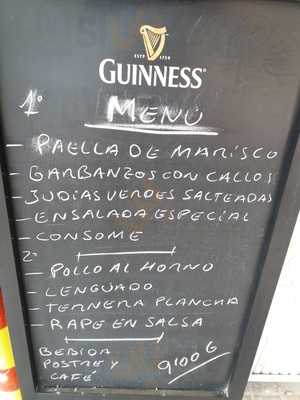 ESTD 1759
GUINNESS
1º
MENÚ
- PAELLA DE MARISCO
- GARBANZOS CON CALLOS
- JUDIAS VERDES SALTEADAS
- ENSALADA ESPECIAL
- CONSOME
2º
- POLLO AL HORNO
- LENGUADO
- TERNERA PLANCHA
- RAPE EN SALSA
BEBIDA
POSTRE Y
CAFÉ
9'00 €